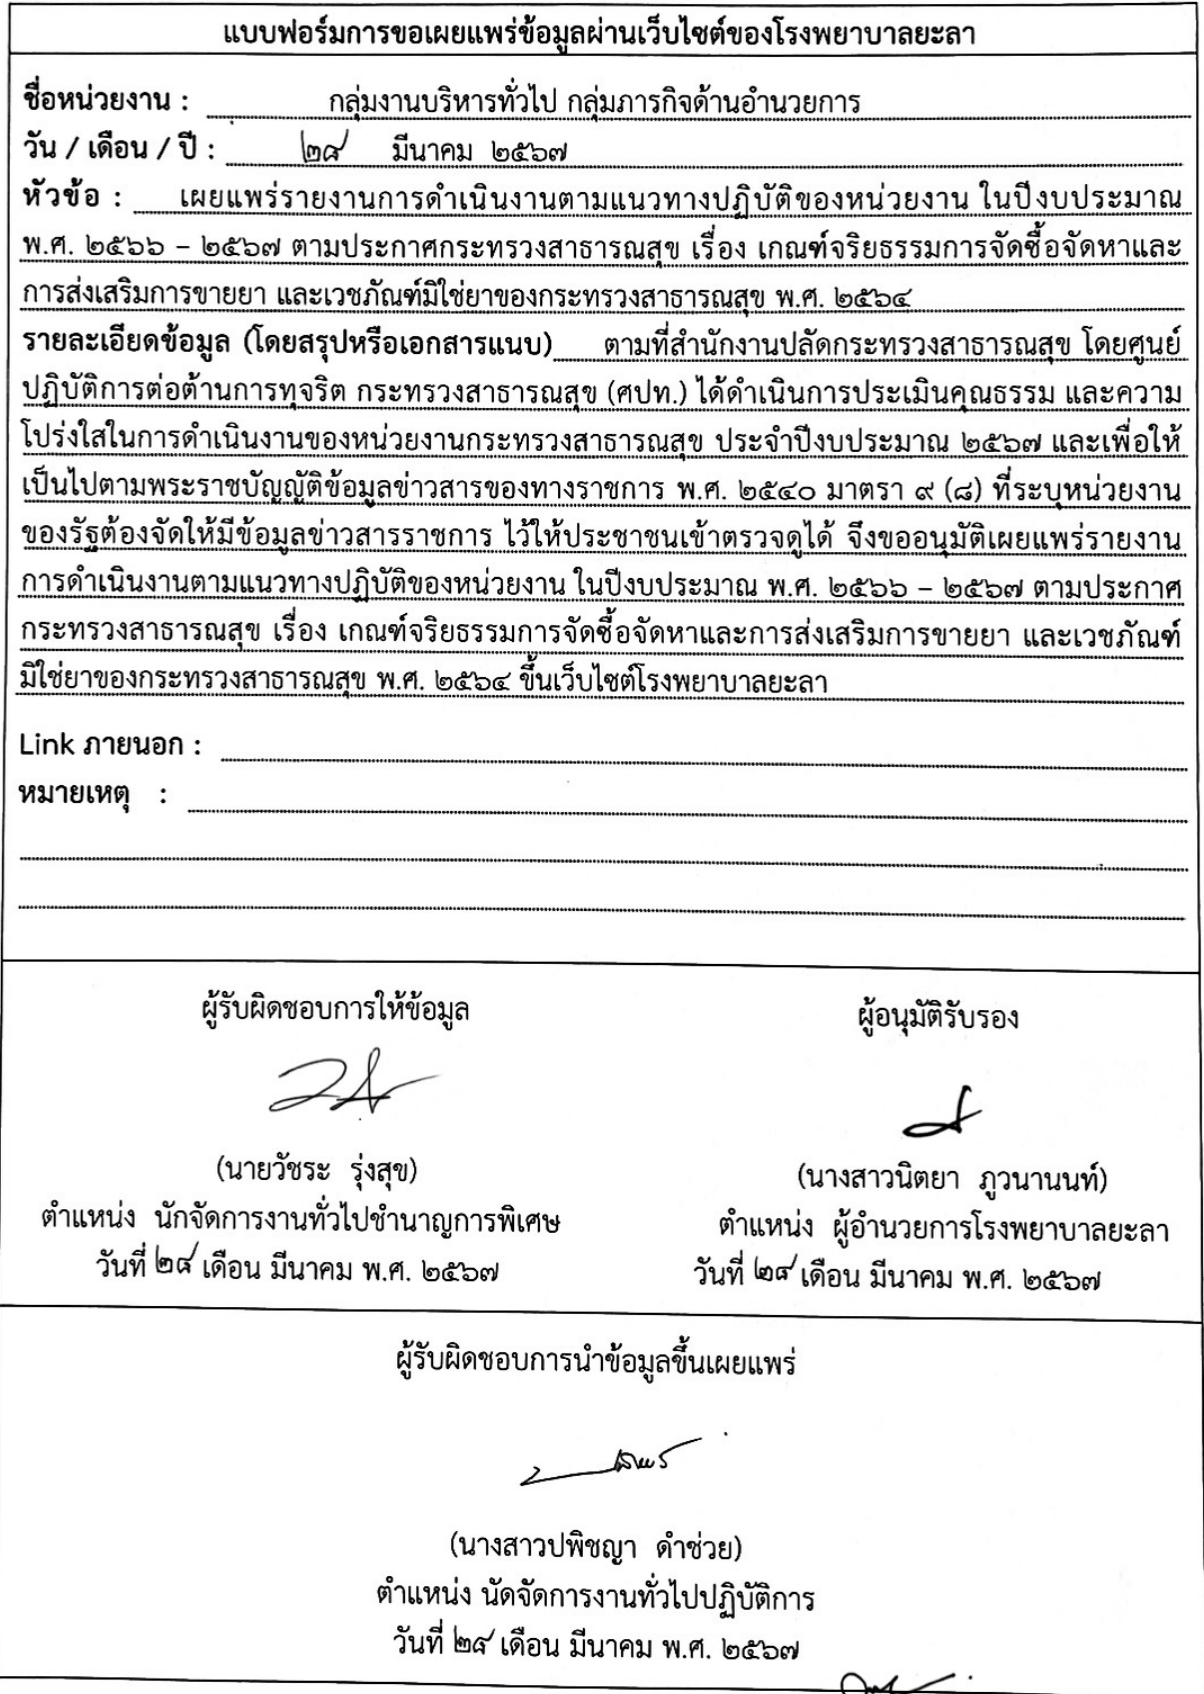 แบบฟอร์มการขอเผยแพร่ข้อมูลผ่านเว็บไซต์ของโรงพยาบาลยะลา
ชื่อหน่วยงาน : กลุ่มงานบริหารทั่วไป กลุ่มภารกิจด้านอำนวยการ
วัน / เดือน / ปี : ๒๘ มีนาคม ๒๕๖๗
หัวข้อ : เผยแพร่รายงานการดำเนินงานตามแนวทางปฏิบัติของหน่วยงาน ในปีงบประมาณ
พ.ศ. ๒๕๖๖ – ๒๕๖๗ ตามประกาศกระทรวงสาธารณสุข เรื่อง เกณฑ์จริยธรรมการจัดซื้อจัดหาและ
การส่งเสริมการขายยา และเวชภัณฑ์มิใช่ยาของกระทรวงสาธารณสุข พ.ศ. ๒๕๖๔
รายละเอียดข้อมูล (โดยสรุปหรือเอกสารแนบ) ตามที่สำนักงานปลัดกระทรวงสาธารณสุข โดยศูนย์
ปฏิบัติการต่อต้านการทุจริต กระทรวงสาธารณสุข (ศปท.) ได้ดำเนินการประเมินคุณธรรม และความ
โปร่งใสในการดำเนินงานของหน่วยงานกระทรวงสาธารณสุข ประจำปีงบประมาณ ๒๕๖๗ และเพื่อให้
เป็นไปตามพระราชบัญญัติข้อมูลข่าวสารของทางราชการ พ.ศ. ๒๕๔๐ มาตรา ๙ (๘) ที่ระบุหน่วยงาน
ของรัฐต้องจัดให้มีข้อมูลข่าวสารราชการ ไว้ให้ประชาชนเข้าตรวจดูได้ จึงขออนุมัติเผยแพร่รายงาน
การดำเนินงานตามแนวทางปฏิบัติของหน่วยงาน ในปีงบประมาณ พ.ศ. ๒๕๖๖ – ๒๕๖๗ ตามประกาศ
กระทรวงสาธารณสุข เรื่อง เกณฑ์จริยธรรมการจัดซื้อจัดหาและการส่งเสริมการขายยา และเวชภัณฑ์
มิใช่ยาของกระทรวงสาธารณสุข พ.ศ. ๒๕๖๔ ขึ้นเว็บไซต์โรงพยาบาลยะลา
Link ภายนอก :
หมายเหตุ :
ผู้รับผิดชอบการให้ข้อมูล
(นายวัชระ รุ่งสุข)
ตำแหน่ง นักจัดการงานทั่วไปชำนาญการพิเศษ
วันที่ ๒๘ เดือน มีนาคม พ.ศ. ๒๕๖๗
ผู้อนุมัติรับรอง
(นางสาวนิตยา ภูวนานนท์)
ตำแหน่ง ผู้อำนวยการโรงพยาบาลยะลา
วันที่ ๒๘ เดือน มีนาคม พ.ศ. ๒๕๖๗
ผู้รับผิดชอบการนำข้อมูลขึ้นเผยแพร่
(นางสาวปพิชญา ดำช่วย)
ตำแหน่ง นัดจัดการงานทั่วไปปฏิบัติการ
วันที่ ๒๘ เดือน มีนาคม พ.ศ. ๒๕๖๗